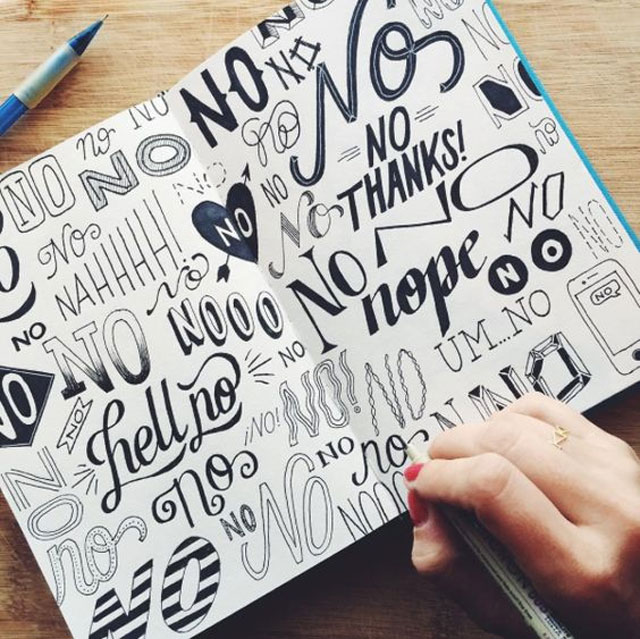 NO
NO
NO
no
NO
NO
NO
no
NO
NO
THANKS!
NO
NO
no
NO
No
NO
NO
NO
NO
No
NAHHHH!
no
NO
NO
nope
NO
NO
NO
NOOO
NO
UM...NO
NO?
hell no
NO!
NO!
NO
NO
NO
no
NO
no
NO
NO
no
NO
NO
NO
no
NO